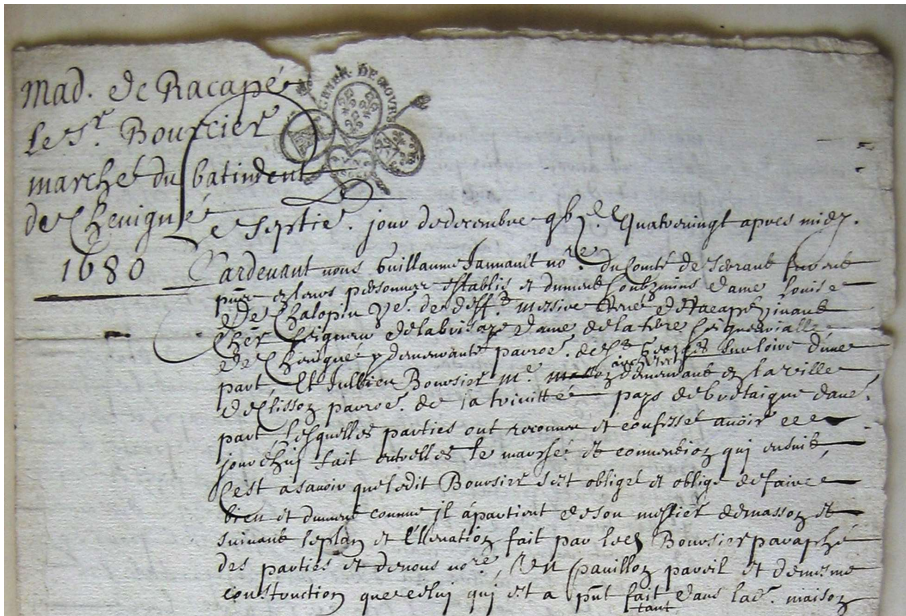 Mad. de Racapé
GENER. DE TOURS
le Sr. Boursier
marché du batiment
de Chevigné
1680
Le Septie. jour de decembre gbi. quatrevingt apres midy.
Pardevant nous Guillaume Jannault nore. du Comté de Serrant furent
personnes establis et dument soubzmins dame louise
de Chalopin ve. de defft. messire de Racapé vivant
Cher. Seigneur de la dame de la terre
de Chevigné y demeurante parroe. de St. Georges sur loire dune
part, Et Jullien Boursier Me. architecte demeurant en la ville
de Clisson parroe. de la trinitté pays de bretaigne dautre
part, lesquelles parties ont recogneu et confessé avoir ce
jourdhuy fait entrelles le marché et convention qui ensuit,
Cest asavoir que ledit Boursier sest obligé et oblige de faire
bien et dument comme il apartient de son mestier de masson et
suivant le plan et Ellevation fait par led. Boursier paraphé
des parties et de nous nore. Un pavillon pareil et de mesme
construction que celuy qui est a pnt fait dans lad. maison
tant